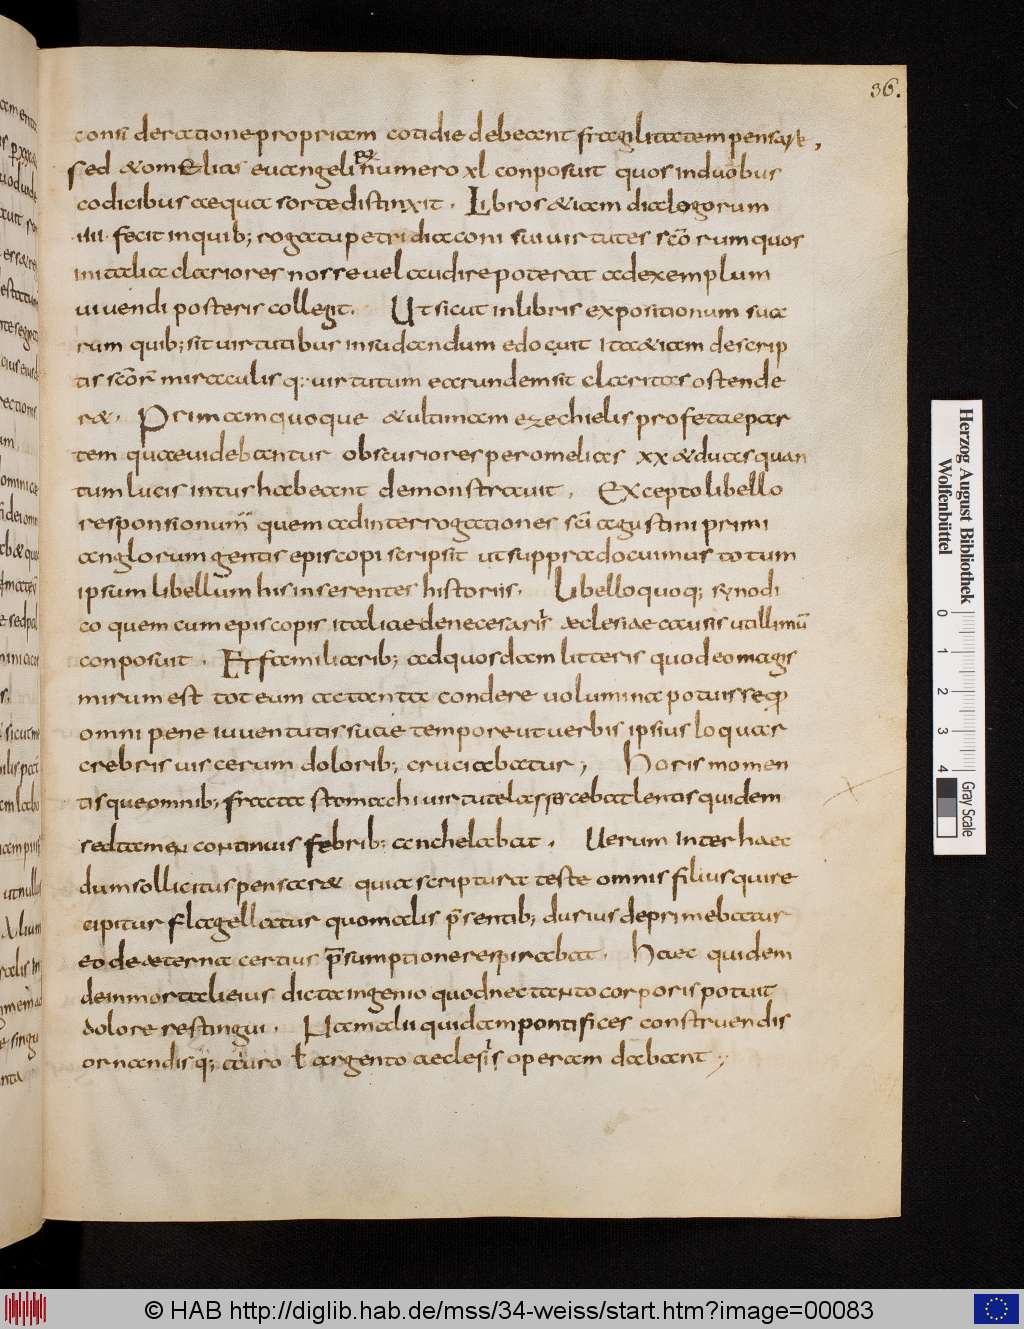 36.
consi deratione propriam cotidie debeant fragilitatem pensare,
sed & omElias euangeliorum numero xl conposuit quos induobus
codicibus aequa sorte distinxit. Libros & iam dialogorum
.iiii. fecit inquib; rogatu petri diaconi sui uirtutes scōrum quos
initalia clariores nosse uel audire poterat adexemplum
uiuendi posteris collegit. Ut sicut inlibris expositionum sua
rum quib; sit uirtutibus insudandum edocuit Ita&iam descrip
tis scōr miraculis q; uirtutum earundem sit claritas ostende
r&. Primam quoque & ultimam ezechielis profetae par
tem quae uidebantur obscuriores per omelias xx & duas quan
tum lucis intus habeant demonstrauit. Excepto libello
responsionum quem ad interrogationes sci agustini primi
anglorum gentis episcopi scripsit ut supra docuimus totum
ipsum libellum his inserentes historiis. Libello quoq; synodi
co quem cum episcopis italiae de necesaris aeclesiae causis utillimū
conposuit. Et familiarib; ad quosdam litteris quod eo magis
mirum est tot eum ac tanta condere uolumina potuisse qđ
omni pene iuuentutis suae tempore ut uerbis ipsius loquar
crebris uiscerum dolorib; cruciabatur; Horis momen
tisque omnib; fracta stomachi uirtute lassacebat lentis quidem
sed tamen continuis febrib; anchelabat. Uerum Inter haec
dum sollicitus pensar& quia scriptura teste omnis filius qui re
cipitur flagellatur quo malis p̄sentib; durius deprimebatur
eo de aeterna certius p̄sumptione respirabat. Haec quidem
de inmortali eius dicta ingenio quod nec tanto corporis potuit
dolore restingui. Nam alii quidam pontifices construendis
ornandisq; auro ł argento aeclesiis operam dabant;
Herzog August Bibliothek
Wolfenbüttel
0 1 2 3 4
Gray Scale
© HAB http://diglib.hab.de/mss/34-weiss/start.htm?image=00083